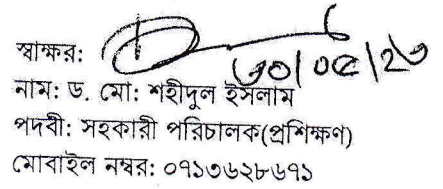 স্বাক্ষর:
৩০/০৫/২৩
নাম: ড. মো: শহীদুল ইসলাম
পদবী: সহকারী পরিচালক(প্রশিক্ষণ)
মোবাইল নম্বর: ০৭১৩৬২৮৬৭১